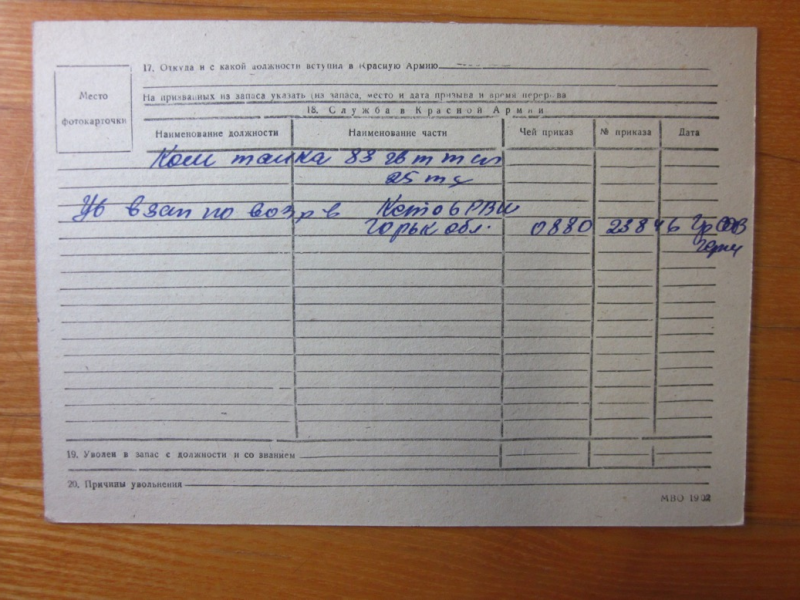 17. Откуда и с какой должности вступил в Красную Армию
Место
фотокарточки
На призванных из запаса указать (из запаса, место и дата призыва и время перерыва
18. Служба в Красной Армии
Наименование должности Наименование части Чей приказ № приказа Дата
Ком танка 83 гв т тсп
25 тд
Ув в зап по возр в РВК
Горьк обл. 0880 23846 Гр СОВ
Герм
19. Уволен в запас с должности и со званием
20. Причины увольнения
МВО